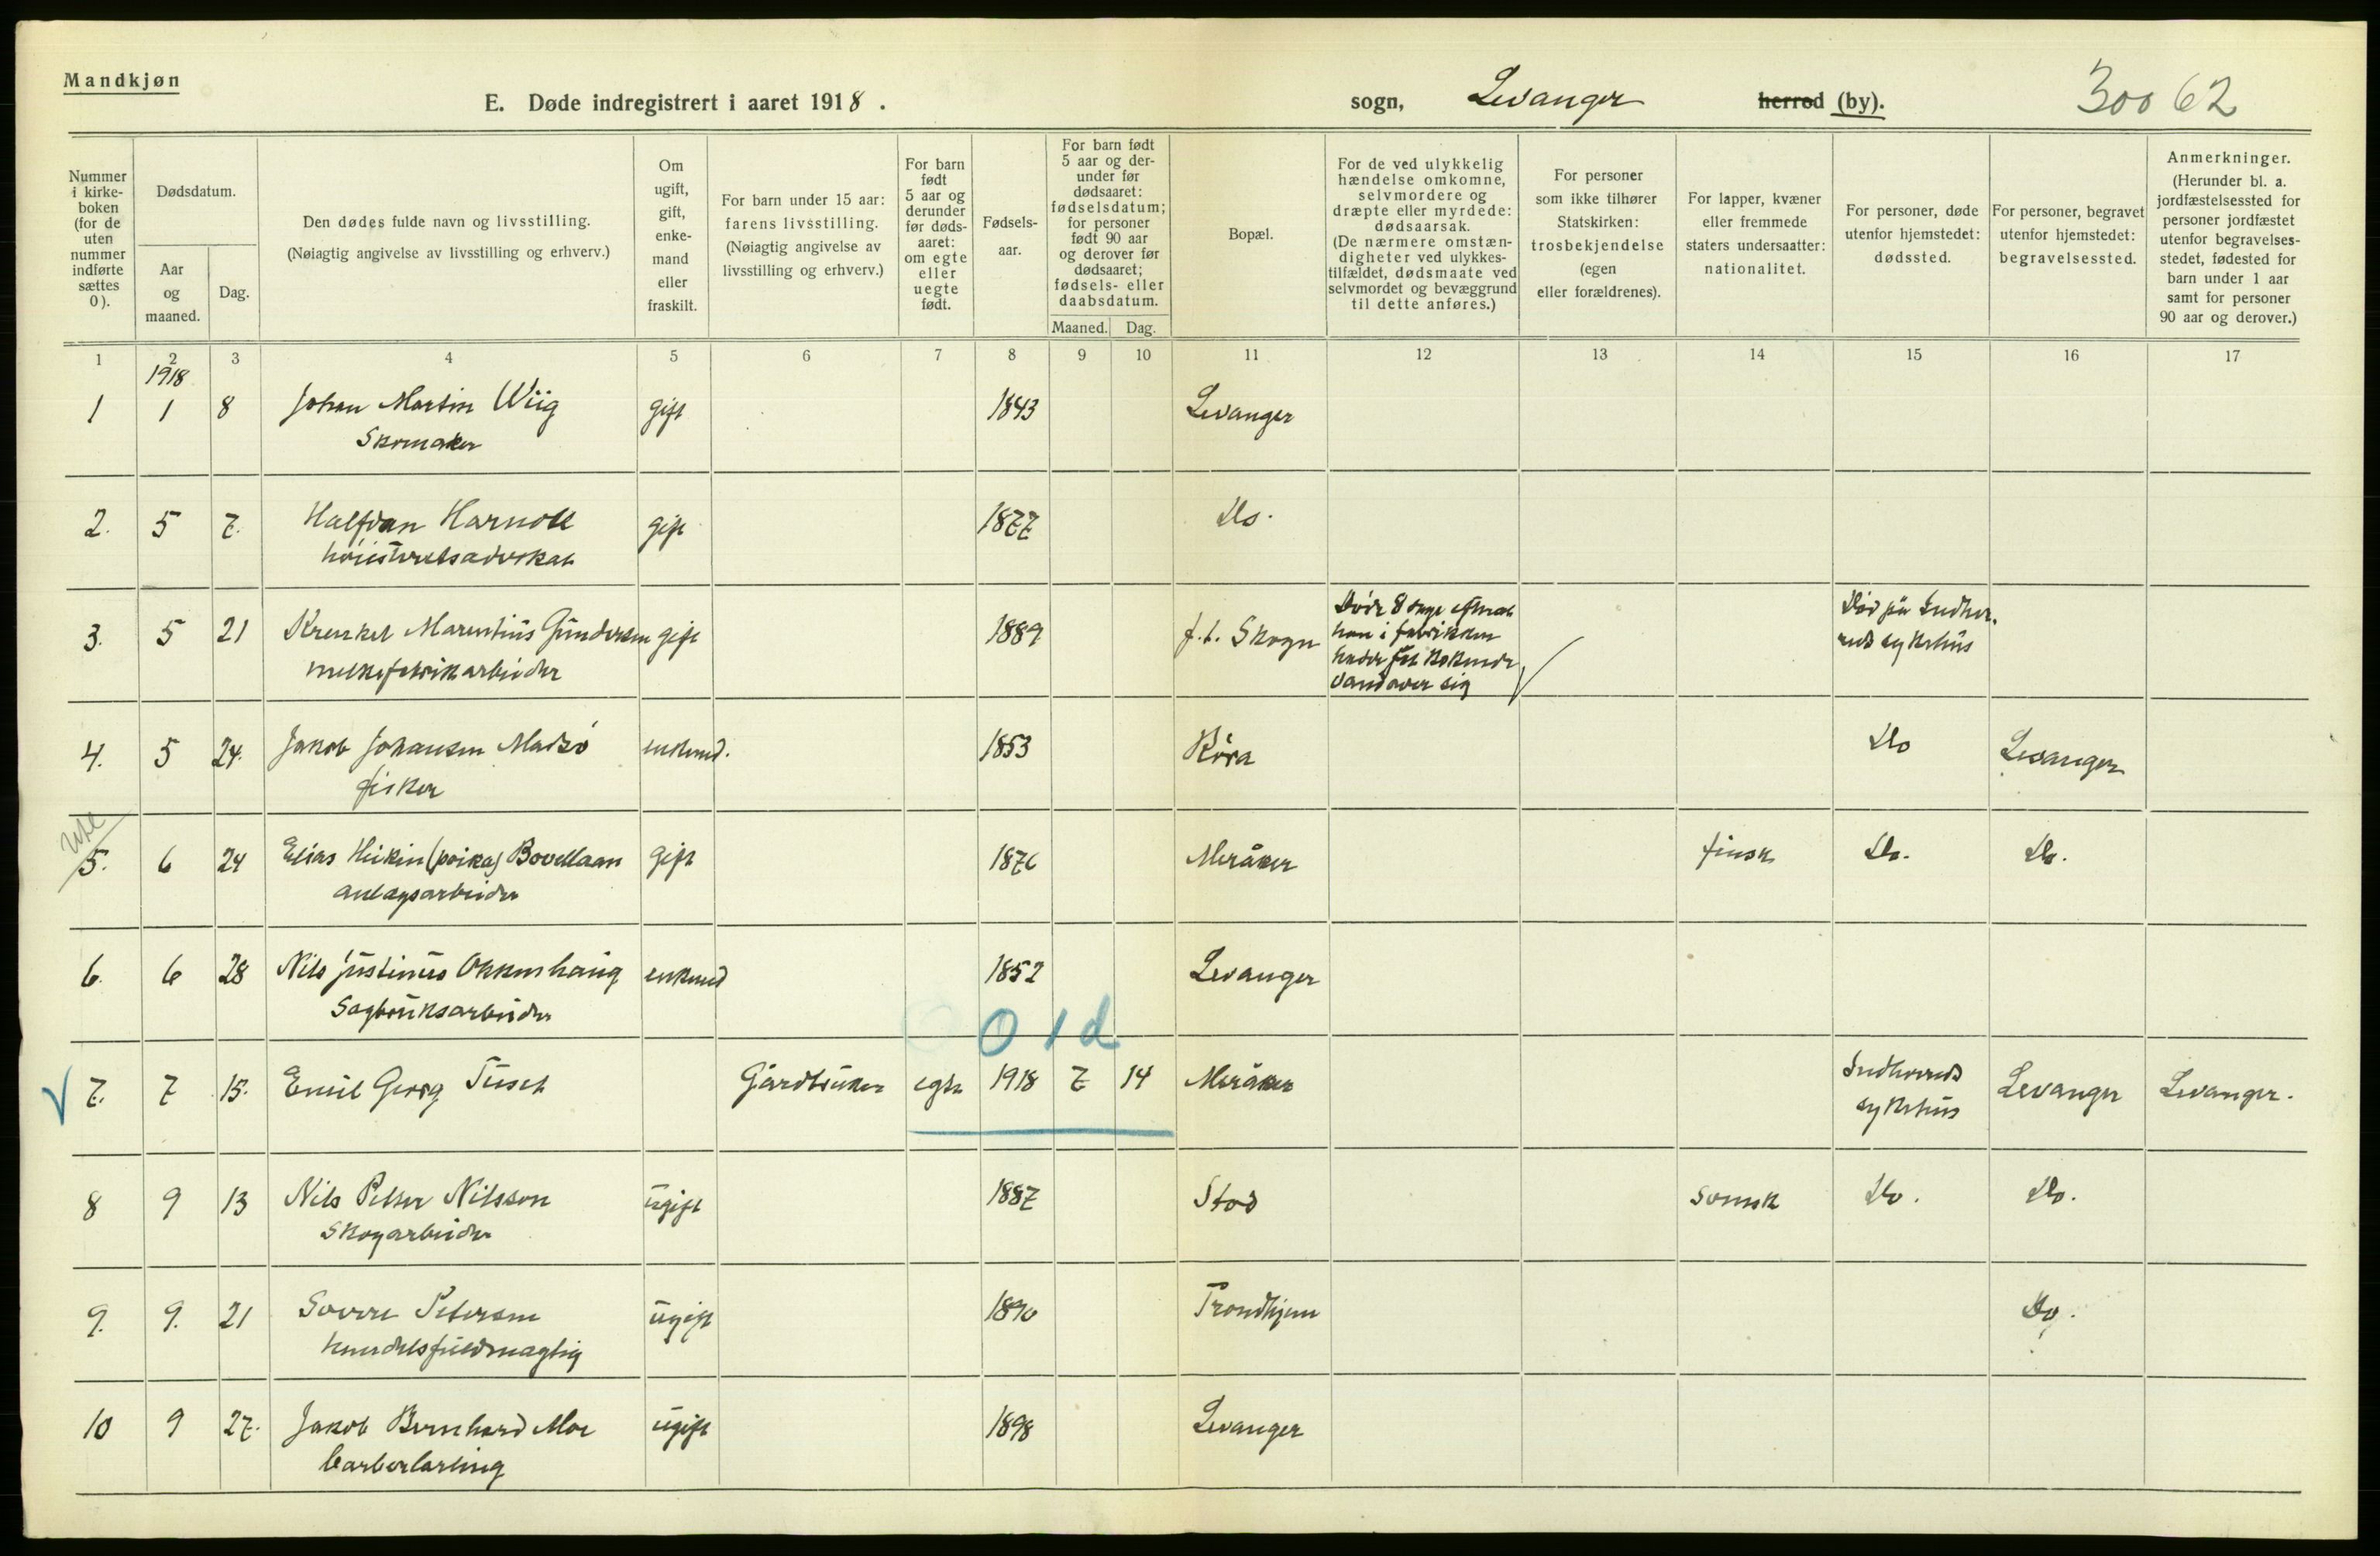 Mandkjøn
E. Døde indregistrert i aaret 1918. sogn, Levanger herred (by). 30062
Nummer i kirke-boken (for de uten nummer indførte sættes 0).
Dødsdatum.
Aar og maaned.
Dag.
Den dødes fulde navn og livsstilling.
(Nøiagtig angivelse av livsstilling og erhverv.)
Om ugift, gift, enke-mand eller fraskilt.
For barn under 15 aar: farens livsstilling. (Nøiagtig angivelse av livsstilling og erhverv.)
For barn født 5 aar og derunder før døds-aaret: om egte eller uegte født.
Fødsels-aar.
For barn født 5 aar og der-under før dødsaaret: fødselsdatum; for personer født 90 aar og derover før dødsaaret; fødsels- eller daabsdatum.
Maaned. Dag.
Bopæl.
For de ved ulykkelig hændelse omkomne, selvmordere og dræpte eller myrdede: dødsaarsak. (De nærmere omstæn-digheter ved ulykkes-tilfældet, dødsmaate ved selvmordet og bevæggrund til dette anføres.)
For personer som ikke tilhører Statskirken: trosbekjendelse (egen eller forældrenes).
For lapper, kvæner eller fremmede staters undersaatter: nationalitet.
For personer, døde utenfor hjemstedet: dødssted.
For personer, begravet utenfor hjemstedet: begravelsessted.
Anmerkninger. (Herunder bl. a. jordfæstelsessted for personer jordfæstet utenfor begravelses-stedet, fødested for barn under 1 aar samt for personer 90 aar og derover.)
1 2 3 4 5 6 7 8 9 10 11 12 13 14 15 16 17
1918
1 1 8 Johan Martin Wiig gift 1843 Levanger
Skomaker
2. 5 7. Halfdan Harnoll gift 1877 Do.
høiesteretsadvokat
3. 5 21 Marentius Gundersen gift 1889 f.t. Skogn Døde 8 dage efterat han i fabrikken hadde fåt kokende vand over sig Død på Indher. reds sykehus
melkefabrikarbeider
4. 5 24. Jakob Johansen enkemd. 1853 Røra Do Levanger
fisker
5. 6 24 Elias Heikin (poika) Bovellaan gift 1876 Meråker finsk Do. Do.
anlægsarbeider
6. 6 28 Nils Justinus Okkenhaug enkemd 1852 Levanger
Sagbruksarbeider
0 1 d
7. 7 15. Emil Georg Tuset Gårdbruker egte 1918 7 14 Meråker Indherreds sykehus Levanger Levanger.
8 9 13 Nils Petter Nilsson ugift 1887 Stod svensk Do. Do.
Skogarbeider
9. 9. 21 Sverre Petersen ugift 1890 Trondhjem Do.
handelsfuldmægtig
10 9 27. Jakob Bernhard Moe ugift 1898 Levanger
barberlærling